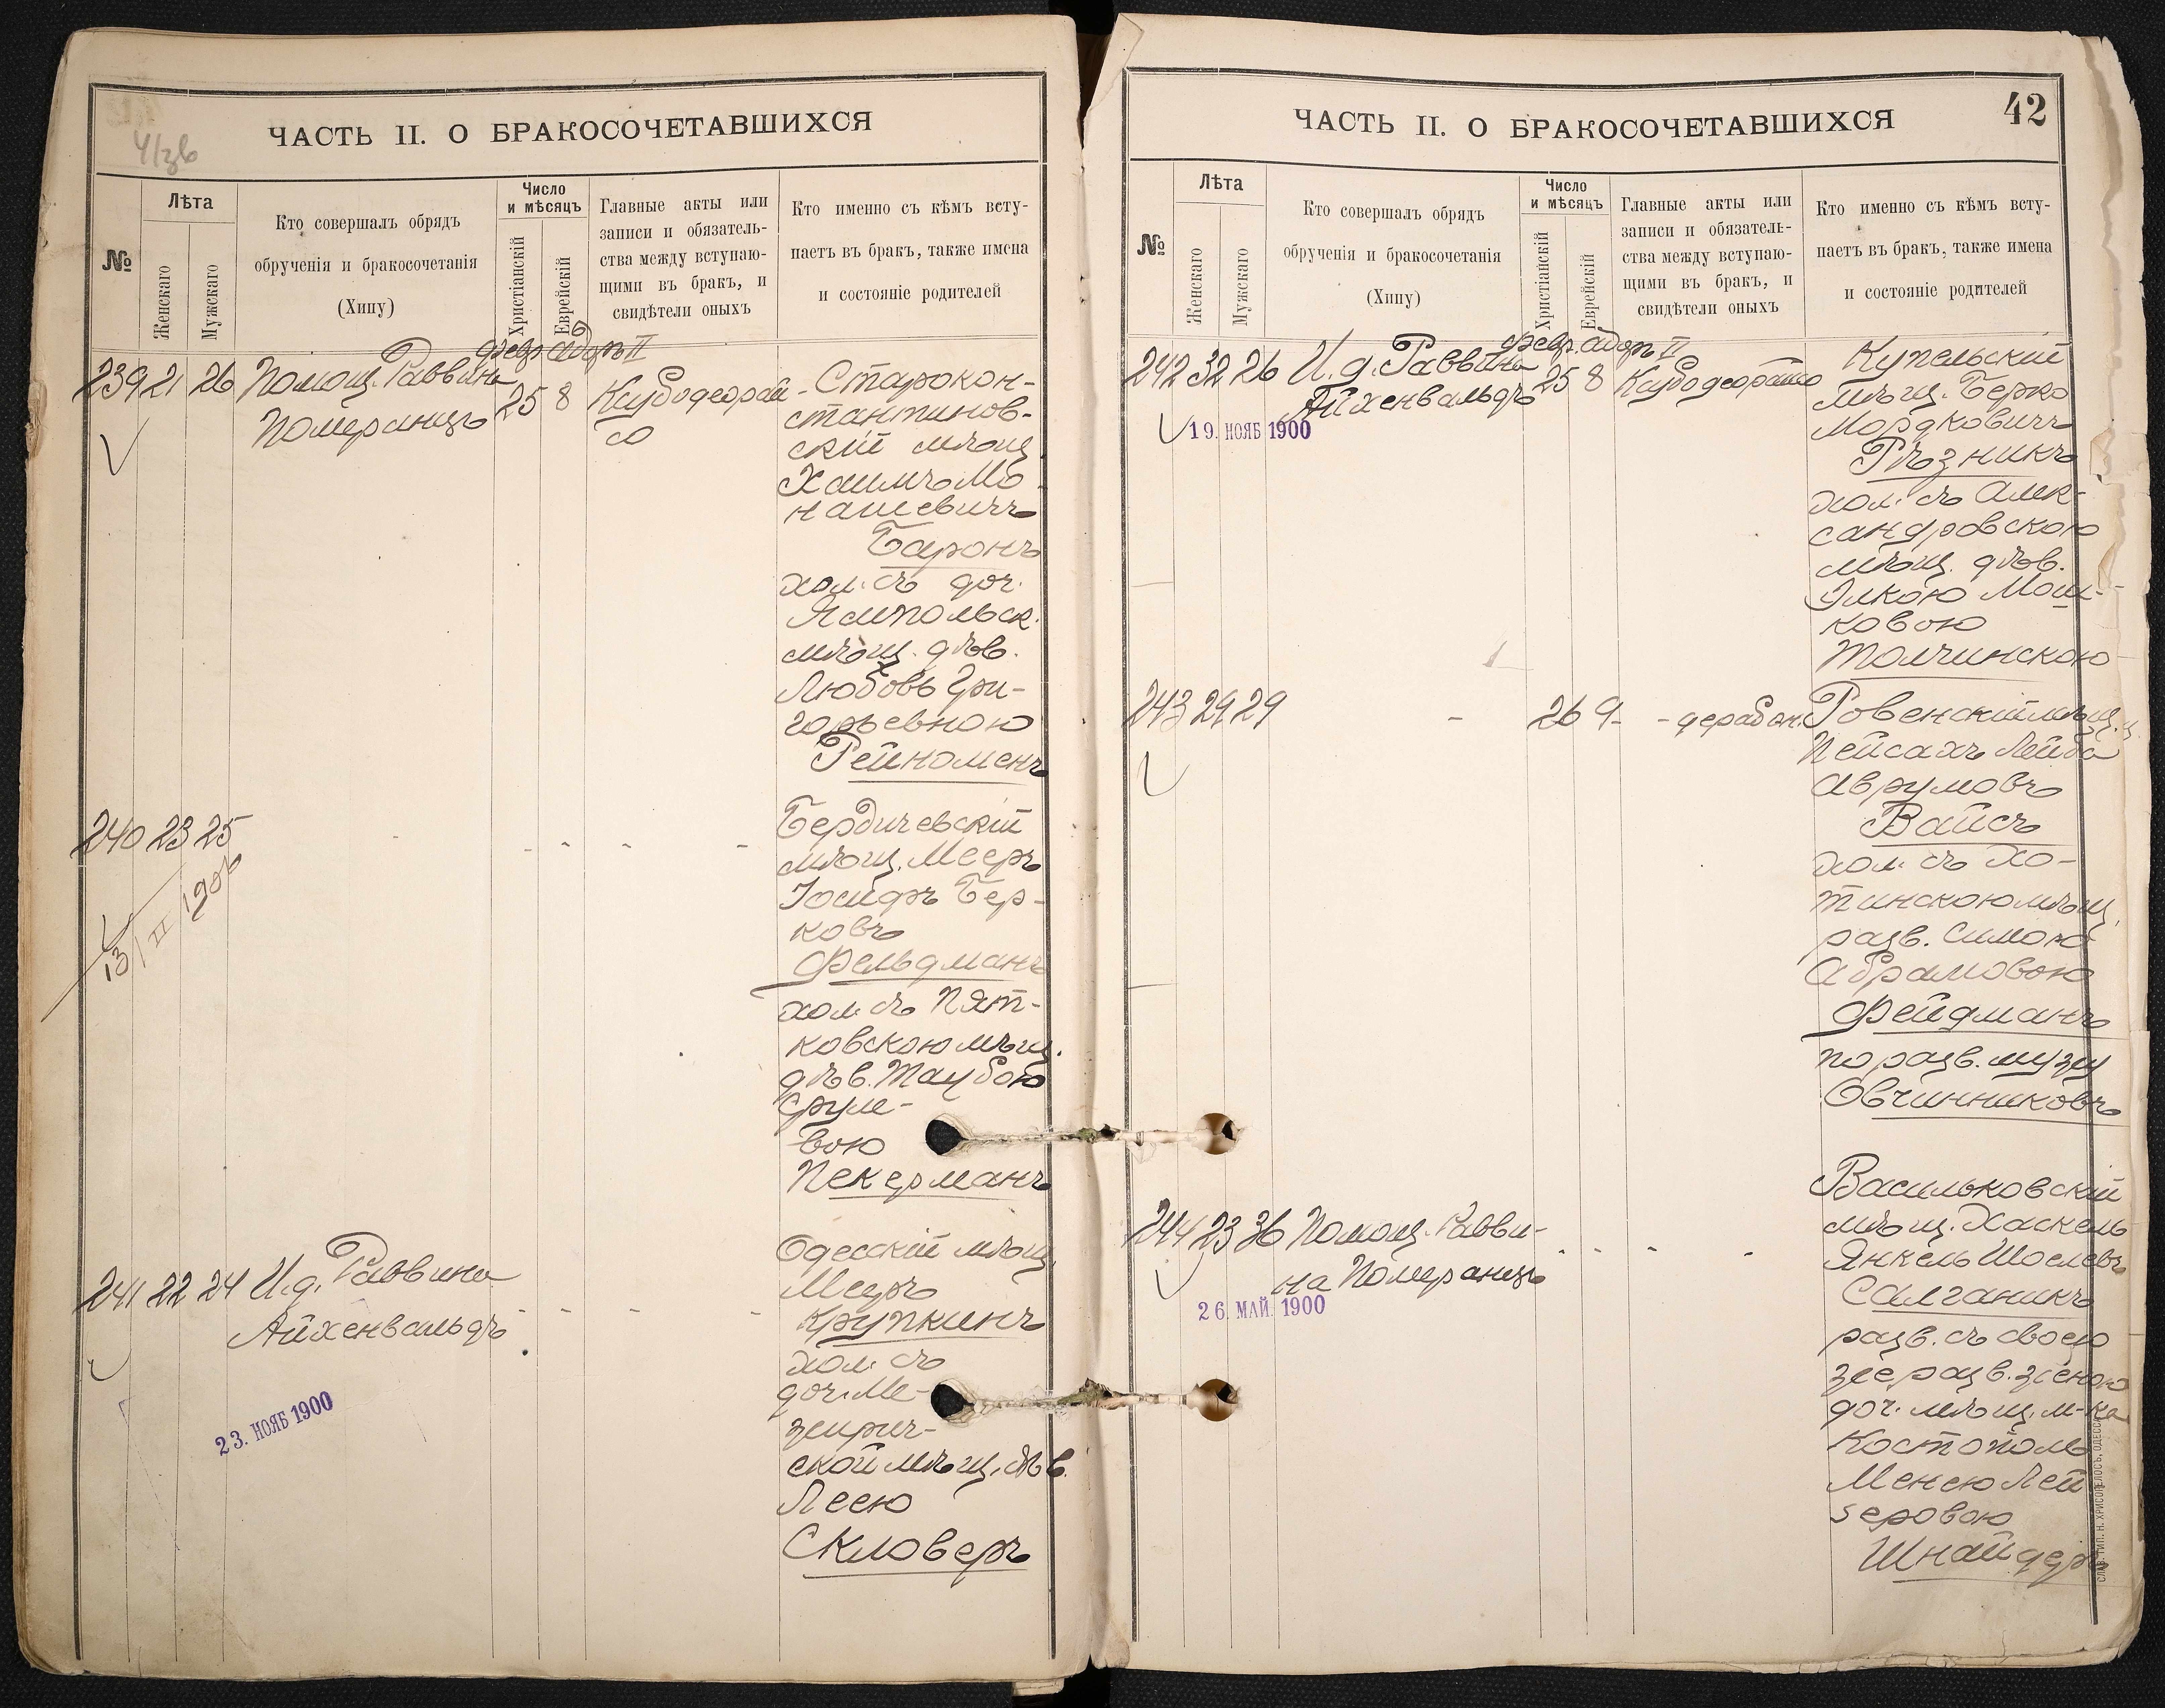 ЧАСТЬ II. О БРАКОСОЧЕТАВШИХСЯ
№
Лѣта
Женскаго
Мужскаго
Кто совершалъ обрядъ
обрученія и бракосочетанія
(Хипу)
Число
и мѣсяцъ
Христіанскій
Еврейскій
Главные акты или
записи и обязатель-
ства между вступаю-
щими въ бракъ, и
свидѣтели оныхъ
Кто именно съ кѣмъ всту-
паетъ въ бракъ, также имена
и состояніе родителей
Февр. Адаръ II
239 21 26 Помощ. Раввина
Померанцъ
25 8
Старокон-
стантинов-
скій мѣщ.
Хаимъ Мо-
нашевичъ
Баронъ
хол. съ доч.
Ямпольск.
мѣщ. дѣв.
Любовь Гри-
горьевною
Рейноменъ
240 23 25
13/II 1906
Бердичевскій
мѣщ. Мееръ
Іосифъ Бер-
ковъ
Фельдманъ
хол. съ Пят-
ковскою мѣщ.
дѣв. Таубою
Сруле-
вою
Пекерманъ
241 22 24 И.д. Раввина
Айхенвальдъ
23. НОЯБ 1900
Одесскій мѣщ.
Мееръ
Крупкинъ
хол. съ
доч. Ме-
зирич-
ской мѣщ. дѣв.
Леею
Скловеръ
ЧАСТЬ II. О БРАКОСОЧЕТАВШИХСЯ
42
№
Лѣта
Женскаго
Мужскаго
Кто совершалъ обрядъ
обрученія и бракосочетанія
(Хипу)
Число
и мѣсяцъ
Христіанскій
Еврейскій
Главные акты или
записи и обязатель-
ства между вступаю-
щими въ бракъ, и
свидѣтели оныхъ
Кто именно съ кѣмъ всту-
паетъ въ бракъ, также имена
и состояніе родителей
Февр. Адаръ II
242 32 26 И.д. Раввина
Айхенвальдъ
25 8
19. НОЯБ 1900
Купельскій
мѣщ. Берко
Мордковичъ
Рѣзникъ
хол. съ Алек-
сандровскою
мѣщ. дѣв.
Элкою Мош-
ковою
Толчинскою
243 29 29 - 26 9
Ровенскій мѣщ.
Пейсахъ Лейба
Аврумовъ
Вайсъ
хол. съ Хо-
тинскою мѣщ.
разв. Симою
Абрамовою
Фейдманъ
по разв. мужу
Овчинниковъ
244 23 36 Помощ. Равви-
на Померанцъ
26. МАЙ. 1900
Васильковскій
мѣщ. Хаскель
Янкель Шоелевъ
Салганикъ
разв. съ своею
же разв. женою
доч. мѣщ. м-ка
Костополь
Менею Лей
зеровою
Шнайдеръ